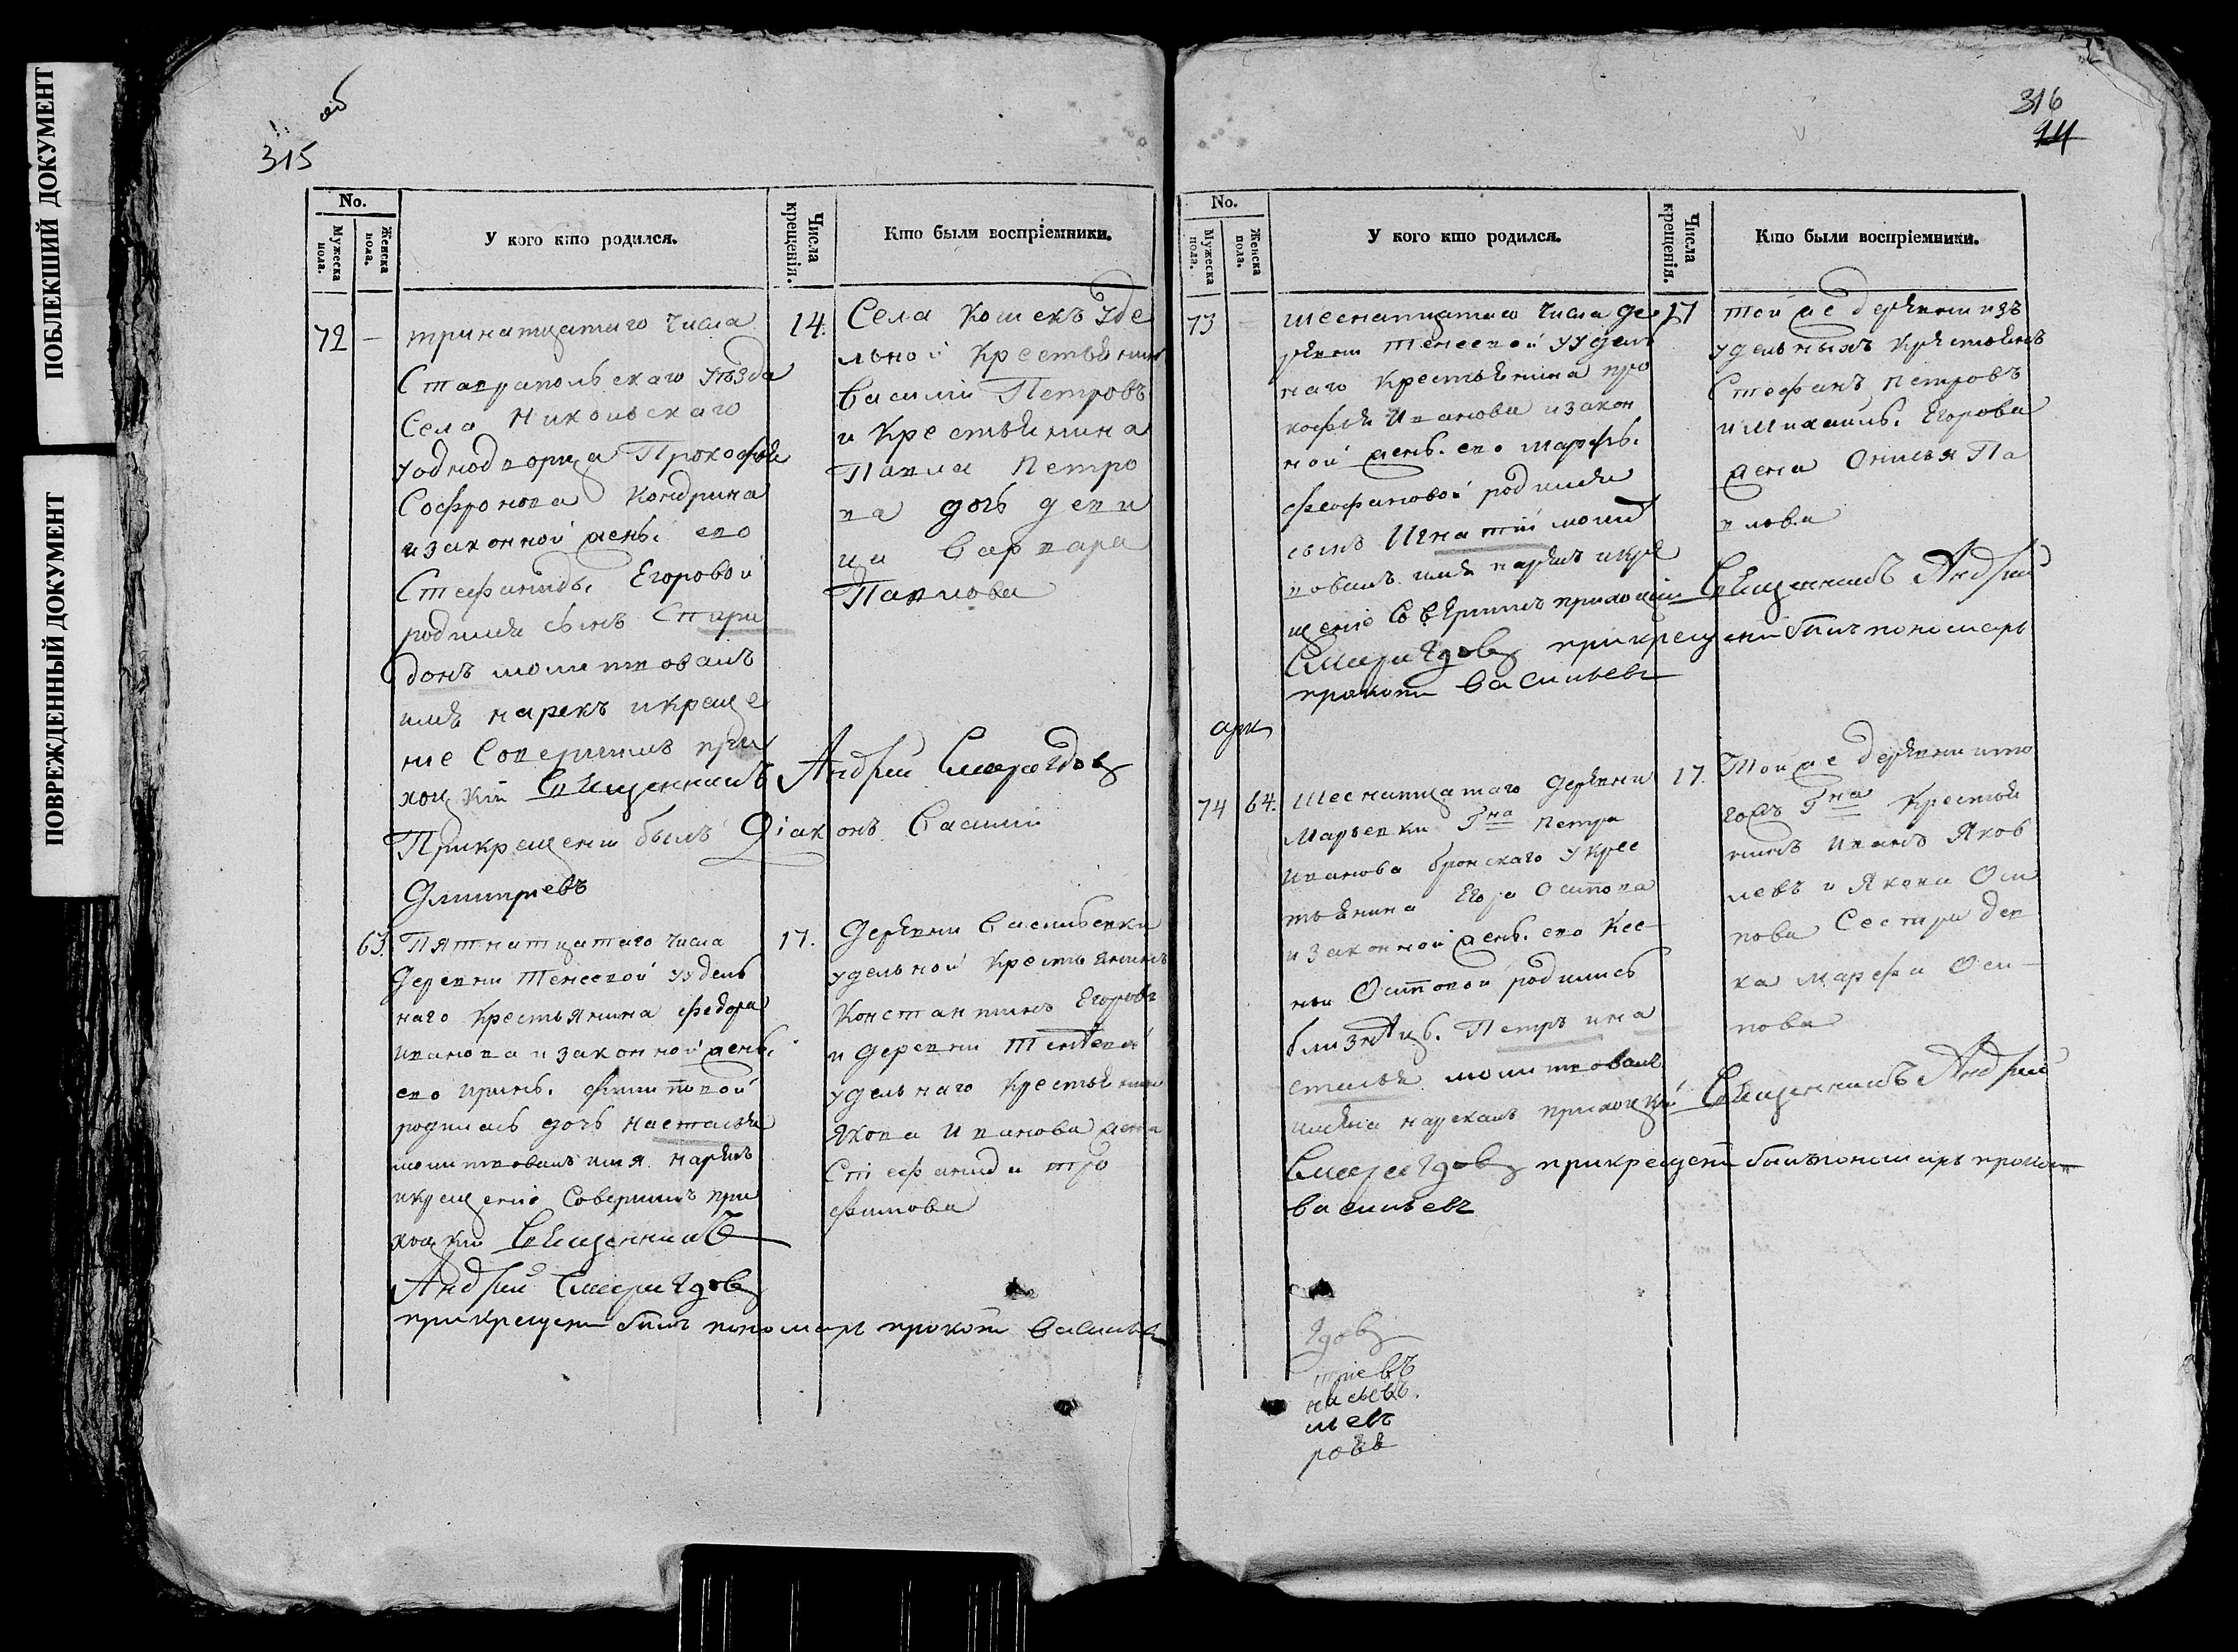 ПОБЛЕКШИЙ ДОКУМЕНТ
ПОВРЕЖДЕННЫЙ ДОКУМЕНТ
об
315
No.
Мужеска пола.
Женска пола.
У кого кто родился.
Числа крещенія.
Кто были воспріемники.
72 — тринатцатаго числа
Ставрапольскаго уѣзда
Села Никольскаго
уоднодворца Прокофья
Софронова Кондрина
изаконной жены его
Стефаниды Егоровой
родился сынъ Спири
донъ молитвовалъ
имя нарекъ икреще
ніе Совершилъ при
ход кій Священникъ Андрей Смарагдов
Прикрещени былъ Діаконъ Василій
Дмитріевъ
14. Села Кошекъ Уде
льной Крестьянинъ
Василій Петровъ
и Крестьянина
Павла Петро
ва дочь деви
ца Варвара
Павлова
63. Пятнатцатаго числа
Деревни Тенеевой уудель
наго Крестьянина Федора
Иванова изаконной жены
его Ирины Филиповой
родилась дочь Настасья
молитвовалъ имя нарекъ
икрещеніе Совершилъ при
ход кій Священникъ
Андрей Смарагдов
прикрещени былъ пономарь прокопий Васильев
17. Деревни Васильевки
удельной Крестьянинъ
Константинъ Егоровъ
и деревни Тенеевой
удельнаго Крестьянина
Якова Иванова жена
Стефанида Тро
фимова
316
No.
Мужеска пола.
Женска пола.
У кого кто родился.
Числа крещенія.
Кто были воспріемники.
73 — шеснатцатаго числа де
ревни Тенеевой уудель
наго Крестьянина про
кофья Иванова изакон
ной жены его Марфы
Феофановой родился
сынъ Игнатій молит
вовалъ имя нарекъ икре
щеніе Совершилъ приходкій Священникъ Андрей
Смарагдов прикрещени былъ пономарь
прокопи Васильевъ
17 той же деревни изъ
удельныхъ Крестьянъ
Стефанъ Петровъ
и Михаилы Егорова
жена Онисья Па
влова
74 64. Шеснатцатаго деревни
Марьевки Гна Петра
Иванова Бронскаго укрес
тьянина Егора Осипова
изаконной жены его Ксе
ньи Осиповой родились
близнецы Петръ ина
стасья молитвовалъ
имена нарекалъ приходкій Священникъ Андрей
Смарагдов прикрещени былъ пономарь прокопи
Васильевъ
17. Той же деревни итого
жъ Гна Крестья
нинъ Иванъ Яков
левъ и Якова Оси
пова Сестра дев
ка Марфа Оси
пова
гдов
тріевъ
левъ
ровъ